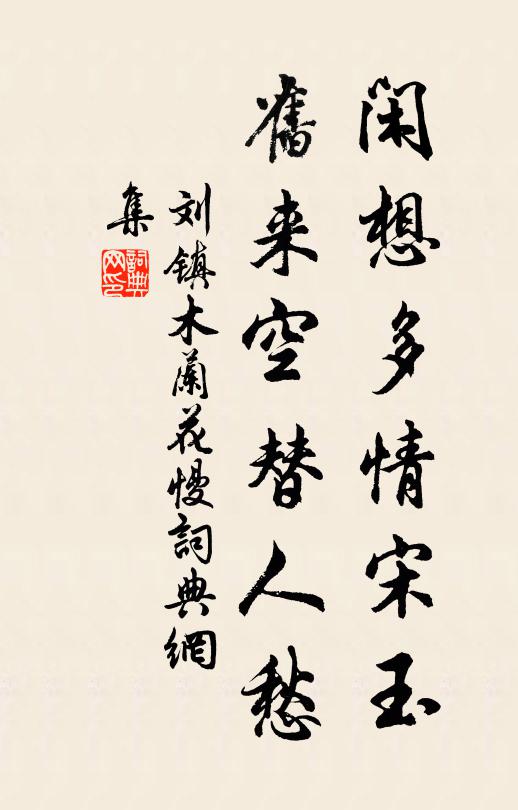 闲想多情宋玉
舊来空替人愁
刘镇木蘭花慢詞典網
集
詞典网印